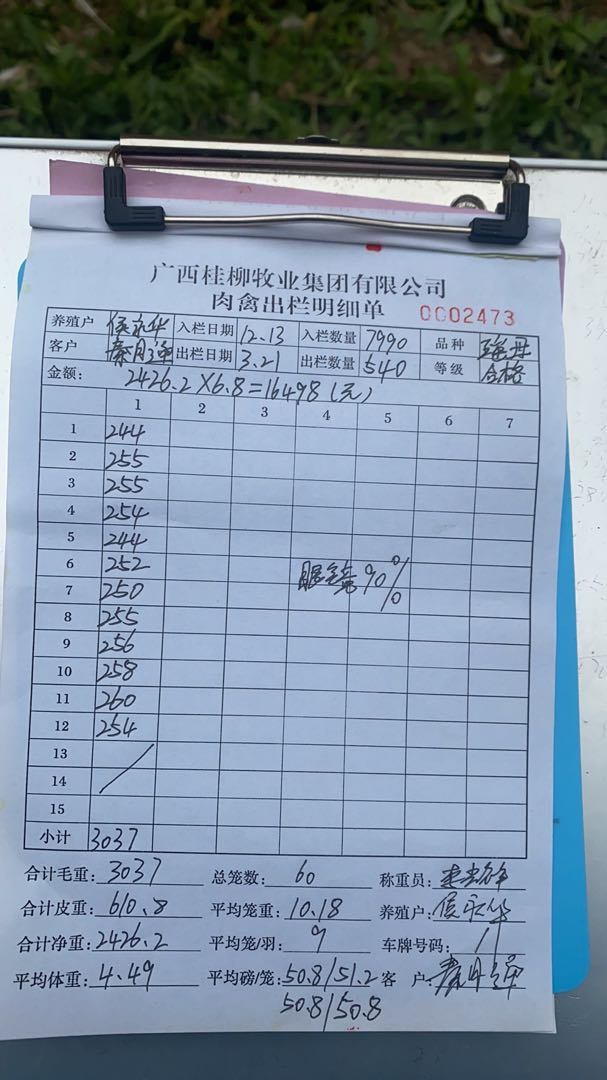 广西桂柳牧业集团有限公司
肉禽出栏明细单 0002473
养殖户 侯永华 入栏日期 12.13 入栏数量 7990 品种
客户 出栏日期 3.21 出栏数量 540 等级 合格
金额: 2426.2×6.8=16498(元)
1 2 3 4 5 6 7
1 244
2 255
3 255
4 254
5 244
6 252
90%
7 250
8 255
9 256
10 258
11 260
12 254
13
14
15
小计 3037
合计毛重: 3037 总笼数: 60 称重员:
合计皮重: 610.8 平均笼重: 10.18 养殖户: 侯永华
合计净重: 2426.2 平均笼/羽: 9 车牌号码:
平均体重: 4.49 平均磅/笼: 50.8/51.2 客 户:
50.8/50.8